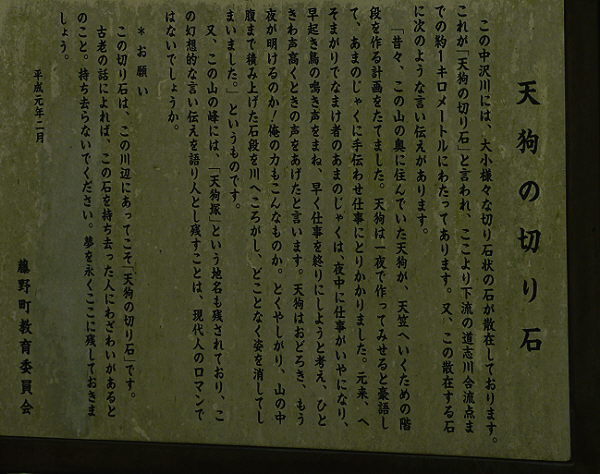 天狗の切り石
この中沢川には、大小様々な切り石状の石が散在しております。
これが「天狗の切り石」と言われ、ここより下流の道志川合流点ま
での約1キロメートルにわたってあります。又、この散在する石
に次のような言い伝えがあります。
「昔々、この山の奥に住んでいた天狗が、天竺へいくための階
段を作る計画をたてました。天狗は一夜で作ってみせると豪語し
て、あまのじゃくに手伝わせ仕事にとりかかりました。元来、へ
そまがりでなまけ者のあまのじゃくは、夜中に仕事がいやになり、
早起き鳥の鳴き声をまね、早く仕事を終りにしようと考え、ひと
きわ声高くときの声をあげたと言います。天狗はおどろき、もう
夜が明けるのか!俺の力もこんなものか。とくやしがり、山の中
腹まで積み上げた石段を川へころがし、どことなく姿を消してし
まいました。」というものです。
又、この山の峰には、「天狗塚」という地名も残されており、こ
の幻想的な言い伝えを語り人とし残すことは、現代人のロマンで
はないでしょうか。
*お願い
この切り石は、この川辺にあってこそ「天狗の切り石」です。
古老の話によれば、この石を持ち去った人にわざわいがあると
のこと。持ち去らないでください。夢を永くここに残しておきま
しょう。
平成元年二月
藤野町教育委員会